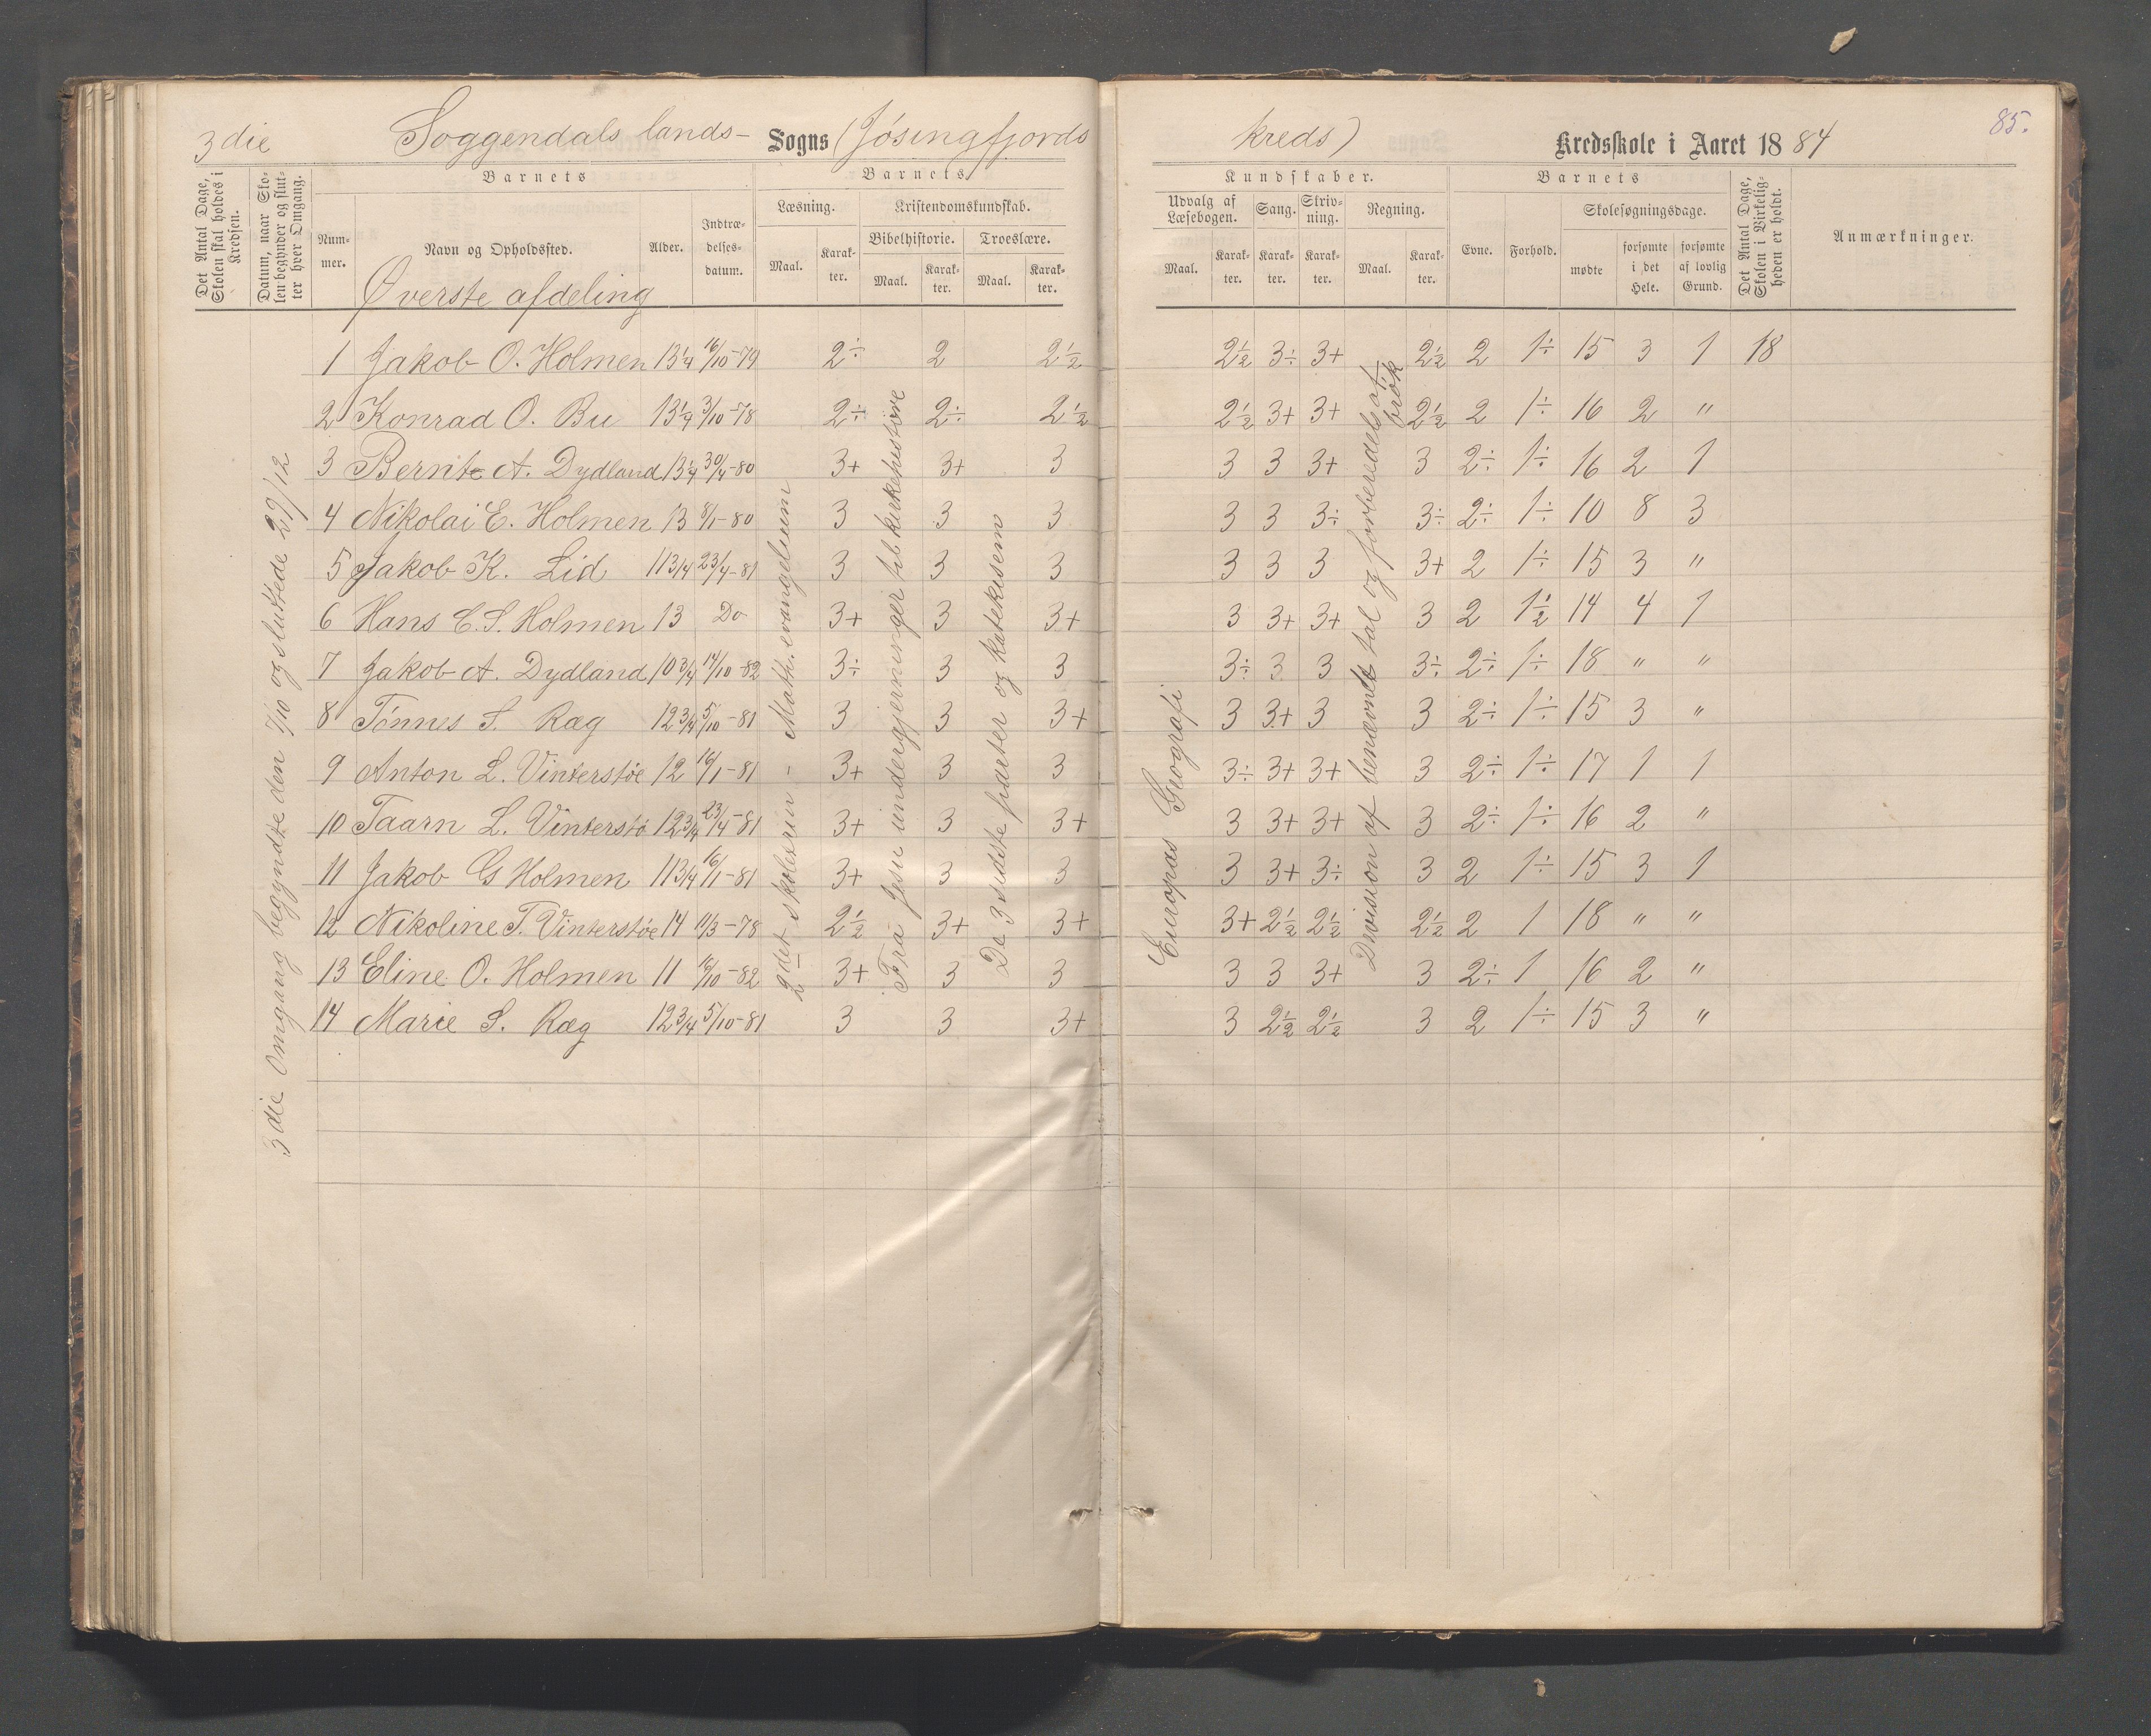 85.
3die Soggendals lands- Sogns (Jösingfjords kreds) Kredsskole i Aaret 1884
Det Antal Dage, Skolen skal holdes i Kredsen.
Datum, naar Skolen begynder og slutter hver Omgang.
Barnets
Nummer.
Navn og Opholdssted.
Alder.
Indtrædelsesdatum.
Barnets
Læsning.
Maal.
Karakter.
Kristendomskundskab.
Bibelhistorie.
Maal.
Karakter.
Troeslære.
Maal.
Karakter.
Kundskaber.
Udvalg af Læsebogen.
Maal.
Karakter.
Sang.
Karakter.
Skrivning.
Karakter.
Regning.
Maal.
Karakter.
Barnets
Evne.
Forhold.
Skolesøgningsdage.
mødte
forsømte i det Hele.
forsømte af lovlig Grund.
Det Antal Dage, Skolen i Virkeligheden er holdt.
Anmærkninger.
Øverste afdeling
1 Jakob O. Holmen 13¼ 16/10-79 2÷ 2 2½ 2½ 3÷ 3+ 2½ 2 1÷ 15 3 1 18
2 Konrad O. Bu 13¼ 3/10-78 2÷ 2÷ 2½ 2½ 3+ 3+ 2½ 2 1÷ 16 2 "
3 Bernt A. Dydland 13¼ 30/4-80 3+ 3+ 3 3 3 3+ 3 2÷ 1÷ 16 2 1
4 Nikolai E. Holmen 13 8/1-80 3 3 3 3 3 3÷ 3÷ 2÷ 1÷ 10 8 3
5 Jakob K. Lid 11 3/4 23/4-81 3 3 3 3 3 3 3+ 2 1÷ 15 3 "
6 Hans E.S. Holmen 13 Do 3+ 3 3+ 3 3+ 3+ 3 2 1½ 14 4 1
7 Jakob A. Dydland 10 3/4 14/10-82 3÷ 3 3 3÷ 3 3 3÷ 2÷ 1÷ 18 " "
8 Tönnes S. Ræg 12 3/4 5/10-81 3 3 3+ 3 3+ 3 3 2÷ 1÷ 15 3 "
9 Anton L. Vinterstøe 12 16/1-81 3+ 3 3 3÷ 3+ 3+ 3 2÷ 1÷ 17 1 1
10 Taarn L. Vinterstö 12 3/4 23/4-81 3+ 3 3+ 3 3+ 3+ 3 2÷ 1÷ 16 2 "
11 Jakob G Holmen 11 3/4 16/1-81 3+ 3 3 3 3+ 3÷ 3 2 1÷ 15 3 1
12 Nikoline T. Vinterstøe 14 11/3-78 2½ 3+ 3+ 3+ 2½ 2½ 2½ 2 1 18 " "
13 Eline O. Holmen 11 16/10-82 3+ 3 3 3 3 3+ 3 2÷ 1 16 2 "
14 Marie S. Ræg 12 3/4 5/10-81 3 3 3+ 3 2½ 2½ 3 2 1÷ 15 3 "
3die Omgang begyndte den 7/10 og sluttede 29/12
2det skoletrin - Math. evangelium
Fra Jesu undergjerninger til kirkehistorie
De 3 sidste parter og katekisem
Europas Geografi
Division af benævnt tal og forberedels af brøk